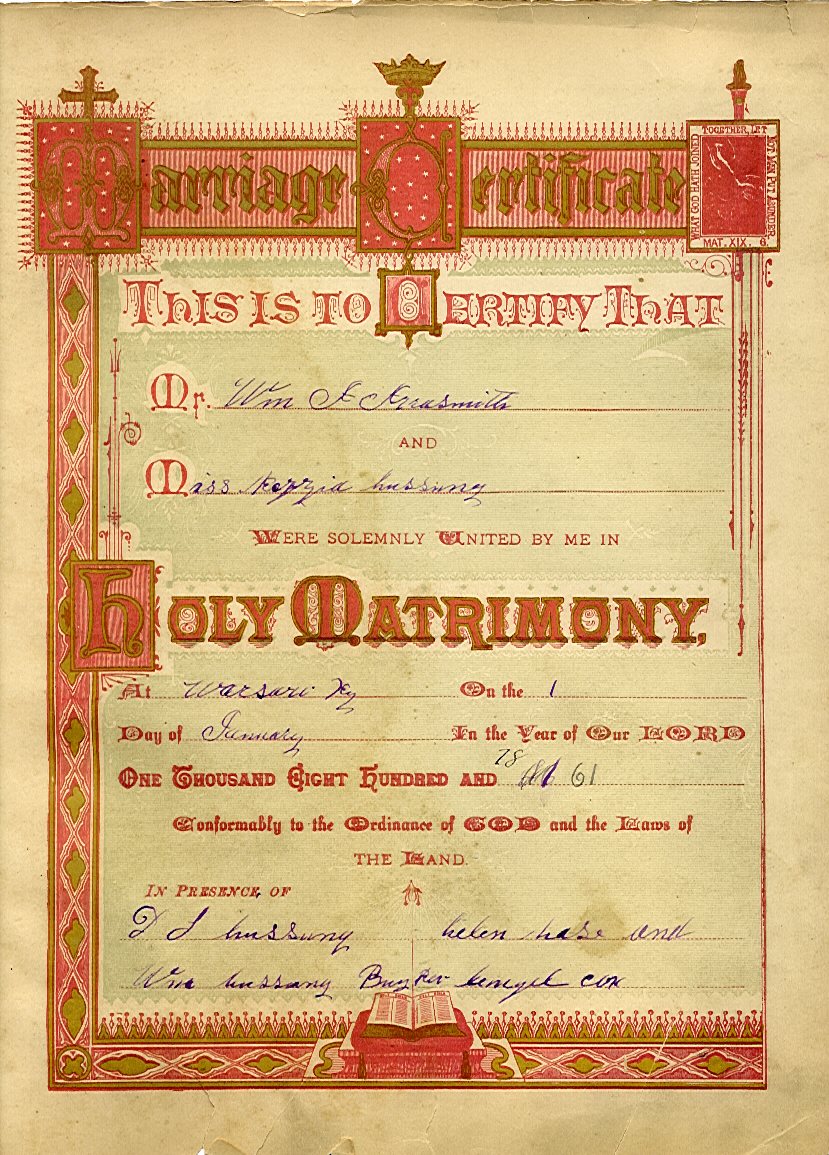 Marriage Certificate
WHAT GOD HATH JOINED TOGETHER, LET NOT MAN PUT ASUNDER
MAT. XIX. 6
THIS IS TO CERTIFY THAT
Mr. Wm
AND
Miss hussung
WERE SOLEMNLY UNITED BY ME IN
HOLY MATRIMONY,
At Warsaw Ky On the 1
Day of January In the Year of Our LORD
ONE THOUSAND EIGHT HUNDRED AND 78 61
Conformably to the Ordinance of GOD and the Laws of
THE LAND.
IN PRESENCE OF
D J hussung helen hase and
Wm hussung cox